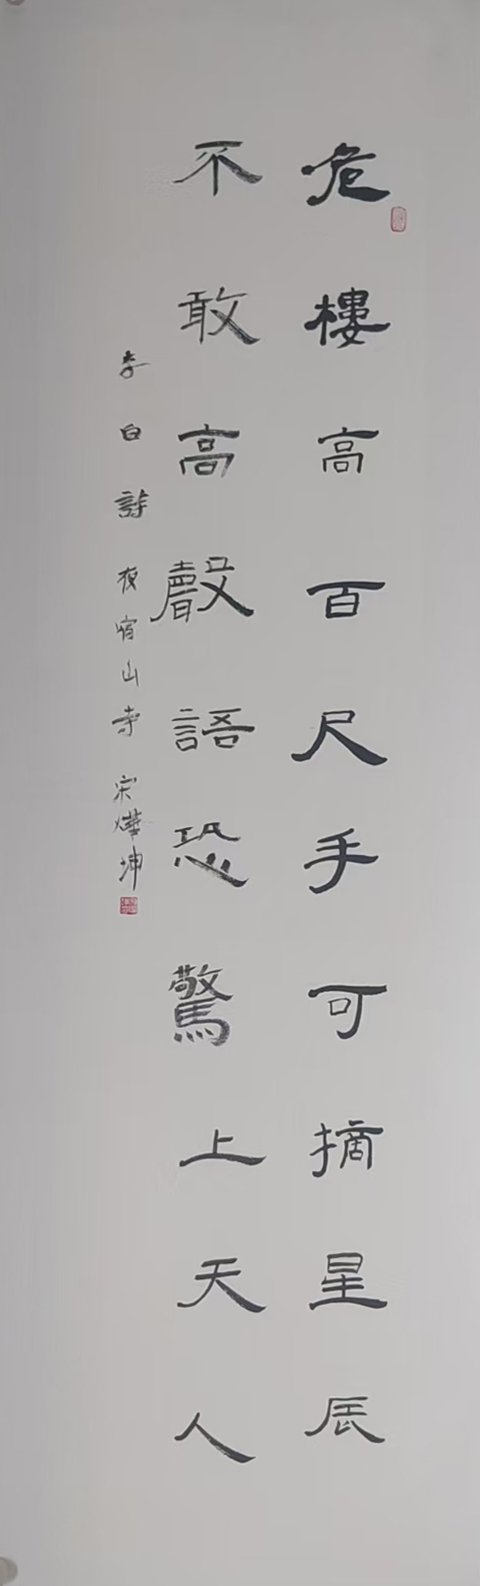 危樓高百尺手可摘星辰
不敢高聲語恐驚上天人
李白詩夜宿山寺宋燁坤